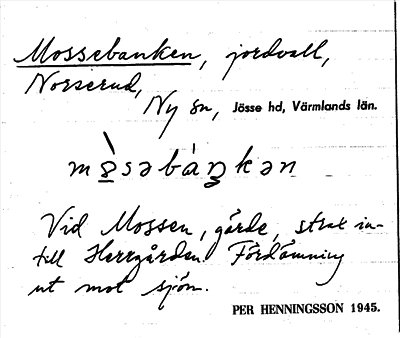 Mossebanken, jordvall,
Norserud,
Ny sn, Jösse hd, Värmlands län.
Vid Mossen, gärde, strax in-
till Herrgården. Fördämning
ut mot sjön.
PER HENNINGSSON 1945.